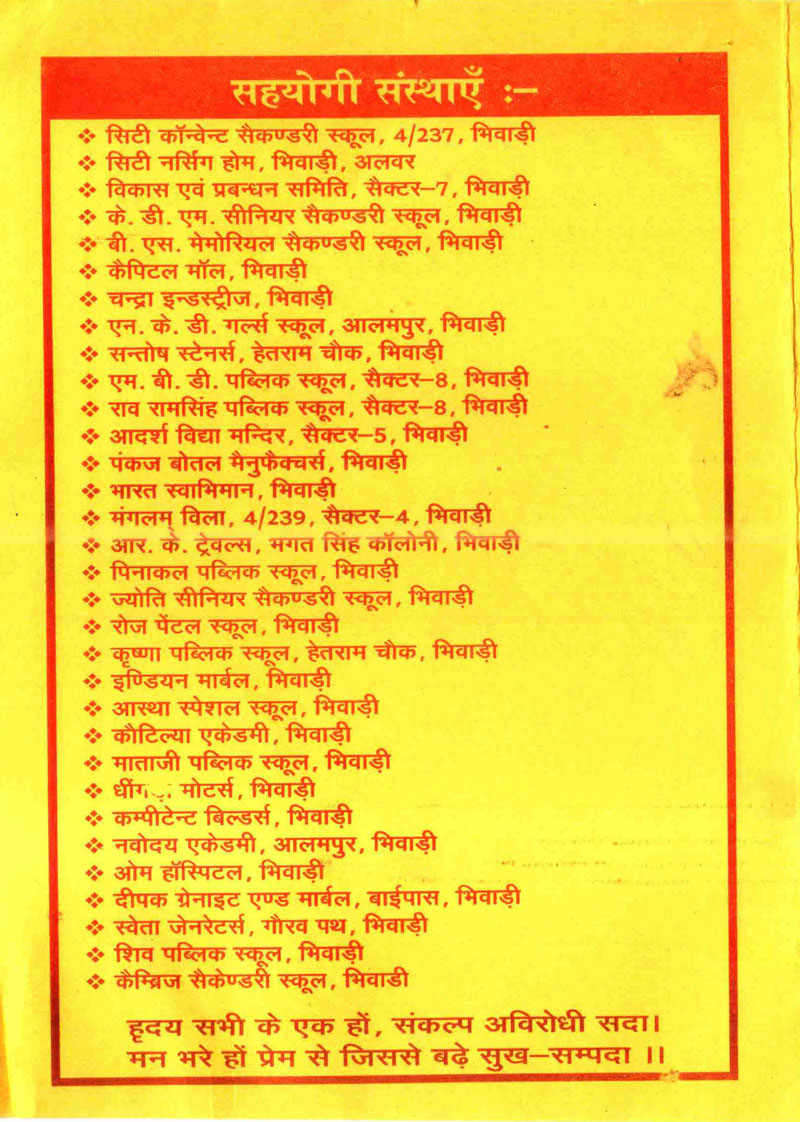 सहयोगी संस्थाएँ :–
❖ सिटी कॉन्वेन्ट सैकण्डरी स्कूल, 4/237, भिवाड़ी
❖ सिटी नर्सिग होम, भिवाड़ी, अलवर
❖ विकास एवं प्रबन्धन समिति, सैक्टर–7, भिवाड़ी
❖ के. डी. एम. सीनियर सैकण्डरी स्कूल, भिवाड़ी
❖ बी. एस. मेमोरियल सैकण्डरी स्कूल, भिवाड़ी
❖ कैपिटल मॉल, भिवाड़ी
❖ चन्द्रा इन्डस्ट्रीज, भिवाड़ी
❖ एन. के. डी. गर्ल्स स्कूल, आलमपुर, भिवाड़ी
❖ सन्तोष स्टेनर्स, हेतराम चौक, भिवाड़ी
❖ एम. बी. डी. पब्लिक स्कूल, सैक्टर–8, भिवाड़ी
❖ राव रामसिंह पब्लिक स्कूल, सैक्टर–8, भिवाड़ी
❖ आदर्श विद्या मन्दिर, सैक्टर–5, भिवाड़ी
❖ पंकज बोतल मैनुफैक्चर्स, भिवाड़ी
❖ भारत स्वाभिमान, भिवाड़ी
❖ मंगलम् विला, 4/239, सैक्टर–4, भिवाड़ी
❖ आर. के. ट्रेवल्स, भगत सिंह कॉलोनी, भिवाड़ी
❖ पिनाकल पब्लिक स्कूल, भिवाड़ी
❖ ज्योति सीनियर सैकण्डरी स्कूल, भिवाड़ी
❖ रोज पेंटल स्कूल, भिवाड़ी
❖ कृष्णा पब्लिक स्कूल, हेतराम चौक, भिवाड़ी
❖ इण्डियन मार्बल, भिवाड़ी
❖ आस्था स्पेशल स्कूल, भिवाड़ी
❖ कौटिल्या एकेडमी, भिवाड़ी
❖ माताजी पब्लिक स्कूल, भिवाड़ी
❖ मोटर्स, भिवाड़ी
❖ कम्पीटेन्ट बिल्डर्स, भिवाड़ी
❖ नवोदय एकेडमी, आलमपुर, भिवाड़ी
❖ ओम हॉस्पिटल, भिवाड़ी
❖ दीपक ग्रेनाइट एण्ड मार्बल, बाईपास, भिवाड़ी
❖ स्वेता जेनरेटर्स, गौरव पथ, भिवाड़ी
❖ शिव पब्लिक स्कूल, भिवाड़ी
❖ कैम्ब्रिज सैकेण्डरी स्कूल, भिवाडी
हृदय सभी के एक हों, संकल्प अविरोधी सदा।
मन भरे हों प्रेम से जिससे बढ़े सुख–सम्पदा ।।